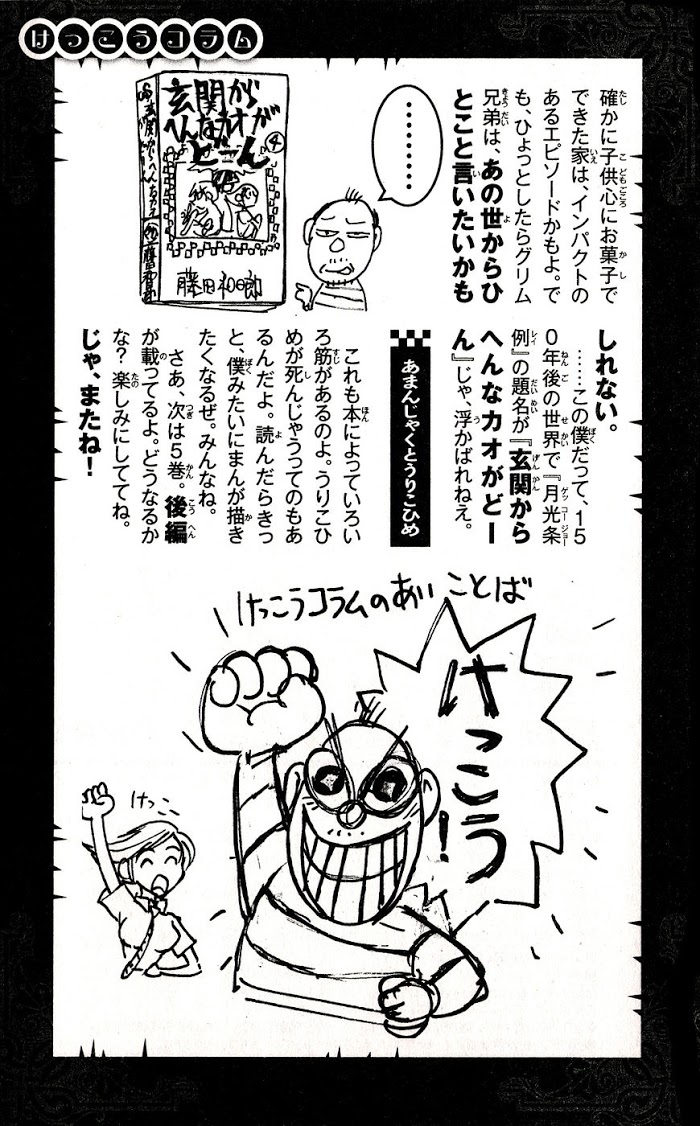 けっこうコラム
確かに子供心にお菓子で
できた家は、インパクトの
あるエピソードかもよ。で
も、ひょっとしたらグリム
兄弟は、あの世からひ
とこと言いたいかも
しれない。
……この僕だって、15
0年後の世界で『月光条
例』の題名が『玄関から
へんなカオがどー
ん』じゃ、浮かばれねえ。
あまんじゃくとうりこひめ
これも本によっていろい
ろ筋があるのよ。うりこひ
めが死んじゃうってのもあ
るんだよ。読んだらきっ
と、僕みたいにまんが描き
たくなるぜ。みんなね。
さあ、次は5巻。後編
が載ってるよ。どうなるか
な?楽しみにしててね。
じゃ、またね!
………
玄関から
へんなカオが
どーん
4
藤田和日郎
けっこうコラムのあいことば
けっこう!
けっこ